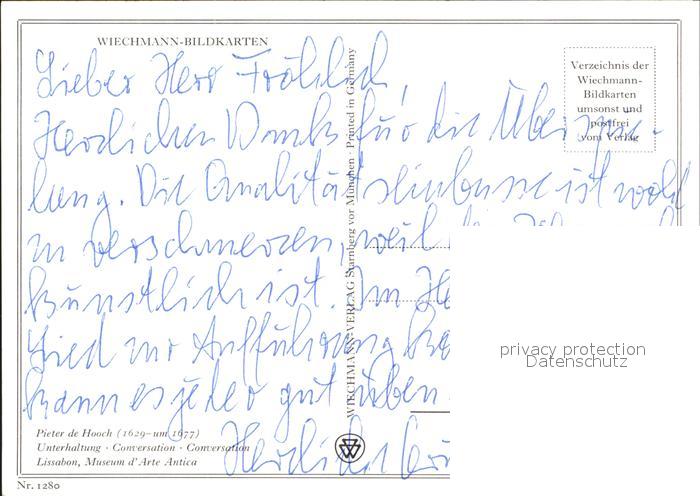 WIECHMANN-BILDKARTEN
Verzeichnis der
Wiechmann-
Bildkarten
umsonst und
postfrei
vom Verlag
Lieber Herr Fröhlich,
Herzlichen Dank für die Überspie-
lung. Die Qualitätseinbusse ist wohl
zu verschmerzen, weil die
künstlich ist. Im
Lied zur Aufführung
kann es jeder gut üben.
Herzliche
WIECHMANN-VERLAG Starnberg vor München · Printed in Germany
privacy protection
Datenschutz
Pieter de Hooch (1629–um 1677)
Unterhaltung · Conversation · Conversation
Lissabon, Museum d'Arte Antica
Nr. 1280